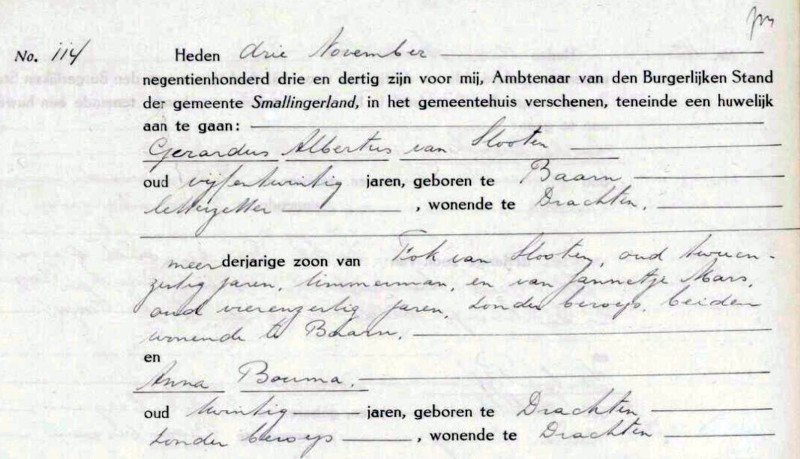 No. 114 Heden drie November
negentienhonderd drie en dertig zijn voor mij, Ambtenaar van den Burgerlijken Stand
der gemeente Smallingerland, in het gemeentehuis verschenen, teneinde een huwelijk
aan te gaan:
Gerardus Albertus van Slooten
oud vijfentwintig jaren, geboren te Baarn
letterzetter, wonende te Drachten.
meerderjarige zoon van Fok van Slooten, oud tweeen-
zestig jaren, timmerman, en van Jannetje Mars,
oud vierenzestig jaren, zonder beroep, beiden
wonende te Baarn.
en
Anna Bouma,
oud twintig jaren, geboren te Drachten
zonder beroep, wonende te Drachten